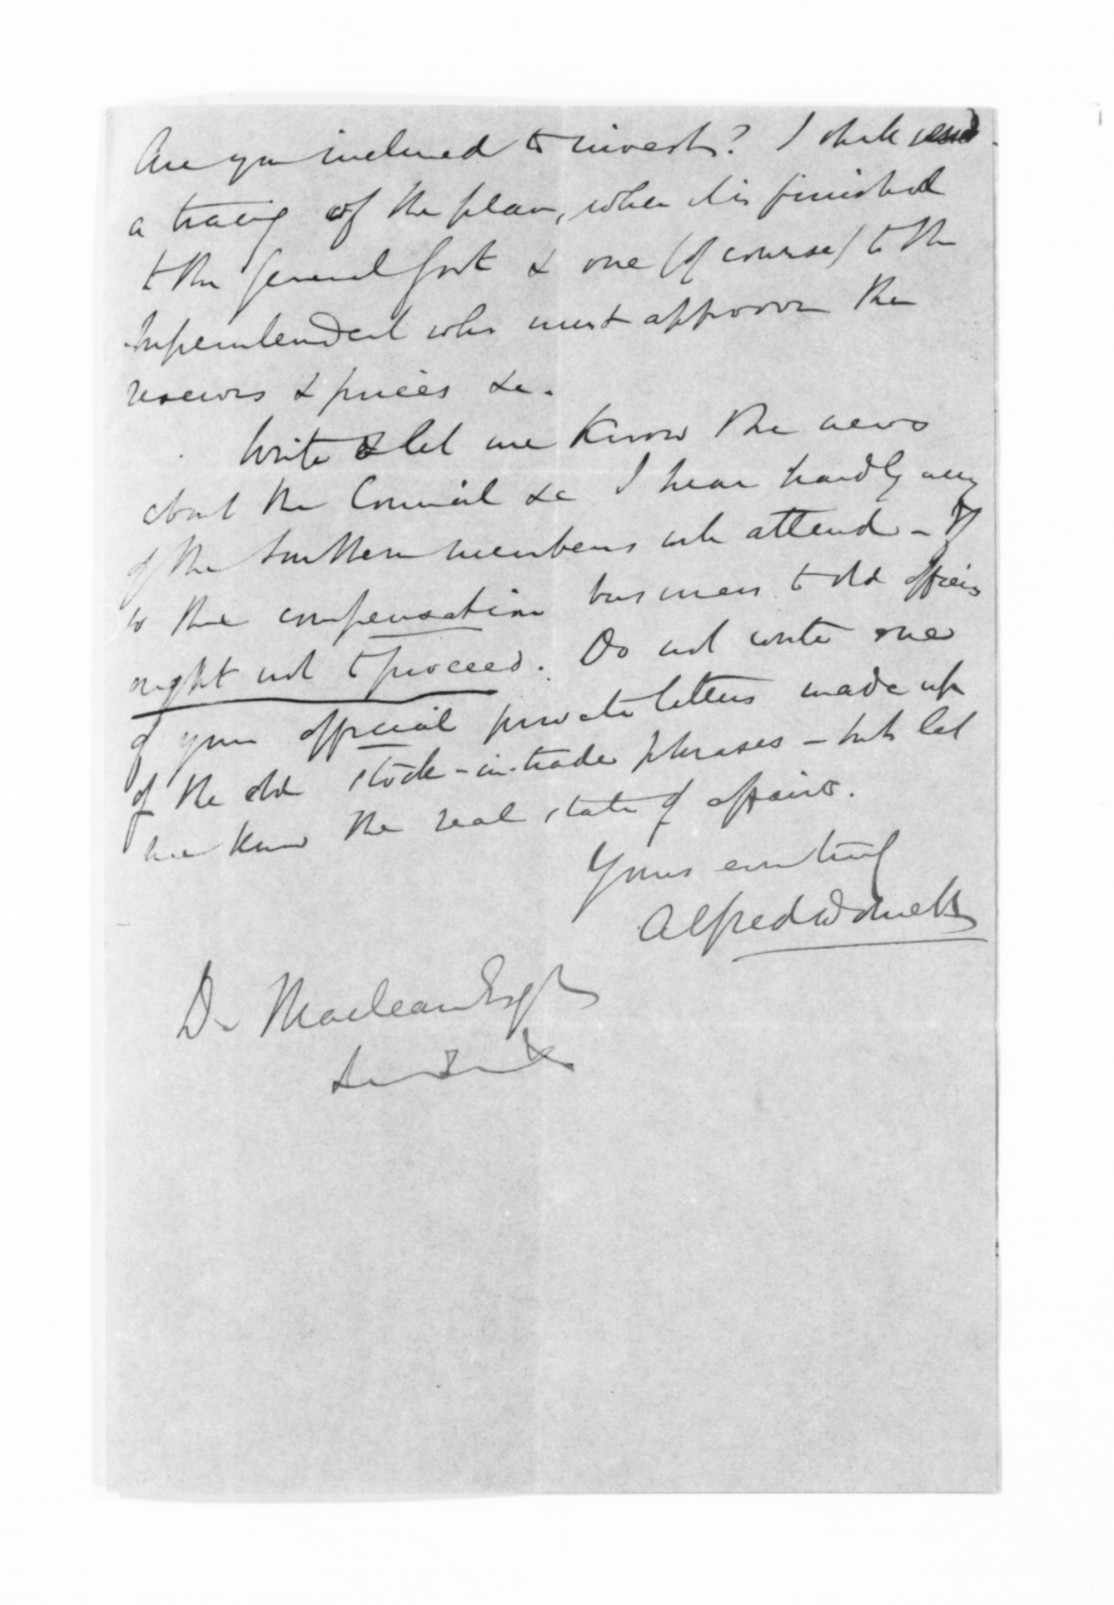 Are you inclined to invest? I shall send
a tracing of the plan, when it is finished
to the General Govt & one (of course) to the
Superintendent who must approve the
reserves & prices &c.
Write & let me know the news
about the Council &c I hear hardly any
of the Southern members will attend - If
so the compensation business to old officers
ought not to proceed. Do not write one
of your official private letters made up
of the old stock-in-trade phrases - but let
me know the real state of affairs.
Yours ever truly
Alfred Domett
D. Maclean Esqr